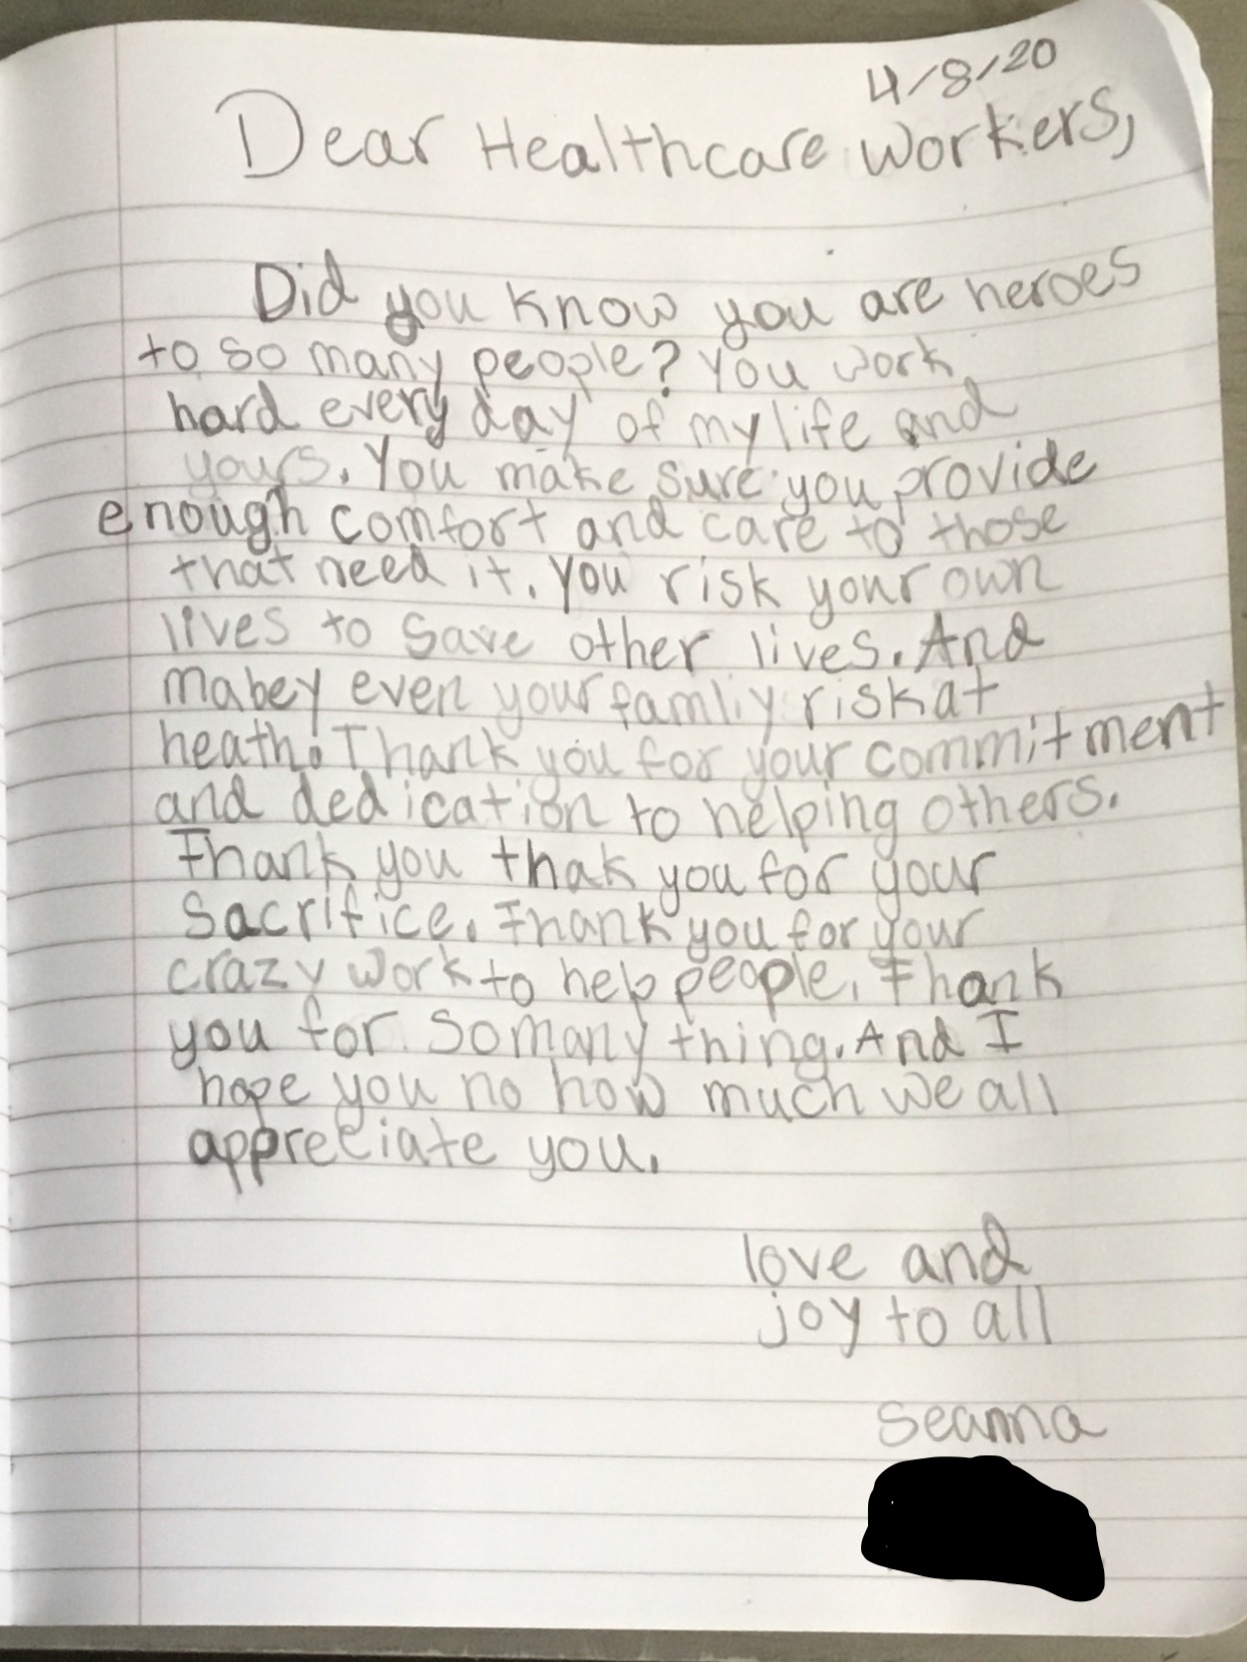 4/8/20
Dear Healthcare Workers,
Did you know you are heroes
to so many people? You work
hard every day of my life and
yours. You make sure you provide
enough comfort and care to those
that need it. You risk your own
lives to save other lives. And
mabey even your famliy risk at
heath. Thank you for your commitment
and dedication to helping others.
Thank you thak you for your
sacrifice. Thank you for your
crazy work to help people. Thank
you for so many thing. And I
hope you no how much we all
appreciate you.
love and
joy to all
Seanna